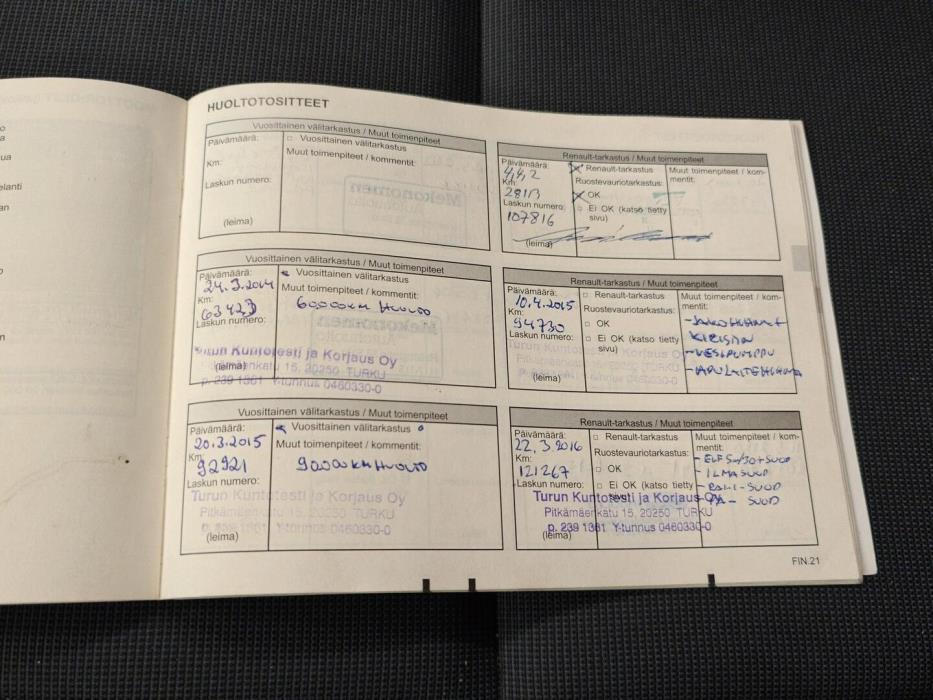 HUOLTOTOSITTEET
Vuosittainen välitarkastus / Muut toimenpiteet
Päivämäärä:
Vuosittainen välitarkastus
Muut toimenpiteet / kommentit:
Km:
Laskun numero:
(leima)
Renault-tarkastus / Muut toimenpiteet
Päivämäärä:
4,4,2
Km:
Laskun numero:
107816
(leima)
Renault-tarkastus
Ruostevauriotarkastus:
OK
Ei OK (katso tietty
sivu)
Muut toimenpiteet / kom-
mentit:
Vuosittainen välitarkastus / Muut toimenpiteet
Päivämäärä:
24.3.2014
Km:
63423
Laskun numero:
Vuosittainen välitarkastus
Muut toimenpiteet / kommentit:
60000KM HUOLTO
Turun Kuntotesti ja Korjaus Oy
(leima)
Pitkämäenkatu 15, 20250 TURKU
p. 239 1381 Y-tunnus 0460330-0
Renault-tarkastus / Muut toimenpiteet
Päivämäärä:
10.4.2015
Km:
94730
Laskun numero:
(leima)
Renault-tarkastus
Ruostevauriotarkastus:
OK
Ei OK (katso tietty
sivu)
Muut toimenpiteet / kom-
mentit:
-JAKOHIHNA+
KIRISTIN
-VESIPUMPPU
-APULAITEHIHNA
Vuosittainen välitarkastus / Muut toimenpiteet
Päivämäärä:
20.3.2015
Km:
92921
Laskun numero:
Vuosittainen välitarkastus
Muut toimenpiteet / kommentit:
90000KM HUOLTO
Turun Kuntotesti ja Korjaus Oy
Pitkämäenkatu 15, 20250 TURKU
p. 239 1381 Y-tunnus 0460330-0
(leima)
Renault-tarkastus / Muut toimenpiteet
Päivämäärä:
22.3.2016
Km:
121267
Laskun numero:
Renault-tarkastus
Ruostevauriotarkastus:
OK
Ei OK (katso tietty
sivu)
Muut toimenpiteet / kom-
mentit:
-ELF 5w30+SUOD
-ILMASUOD
-RAI-SUOD
-PA- SUOD
Turun Kuntotesti ja Korjaus Oy
Pitkämäenkatu 15, 20250 TURKU
p. 239 1381 Y-tunnus 0460330-0
(leima)
FIN.21